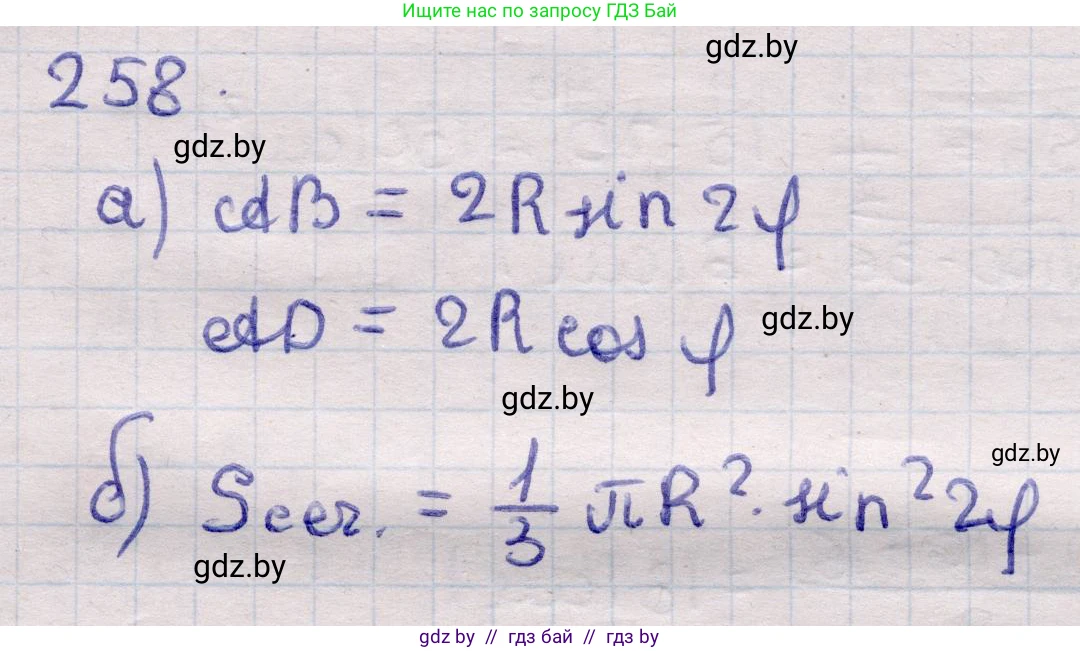 Ищите нас по запросу ГДЗ Бай
gdz.by
258.
gdz.by
а) AB = 2R sin 2φ
AD = 2R cos φ
gdz.by
gdz.by
gdz.by
б) Sсег. = 1/3 πR². sin² 2φ
gdz.by
gdz by // гдз бай // гдз by